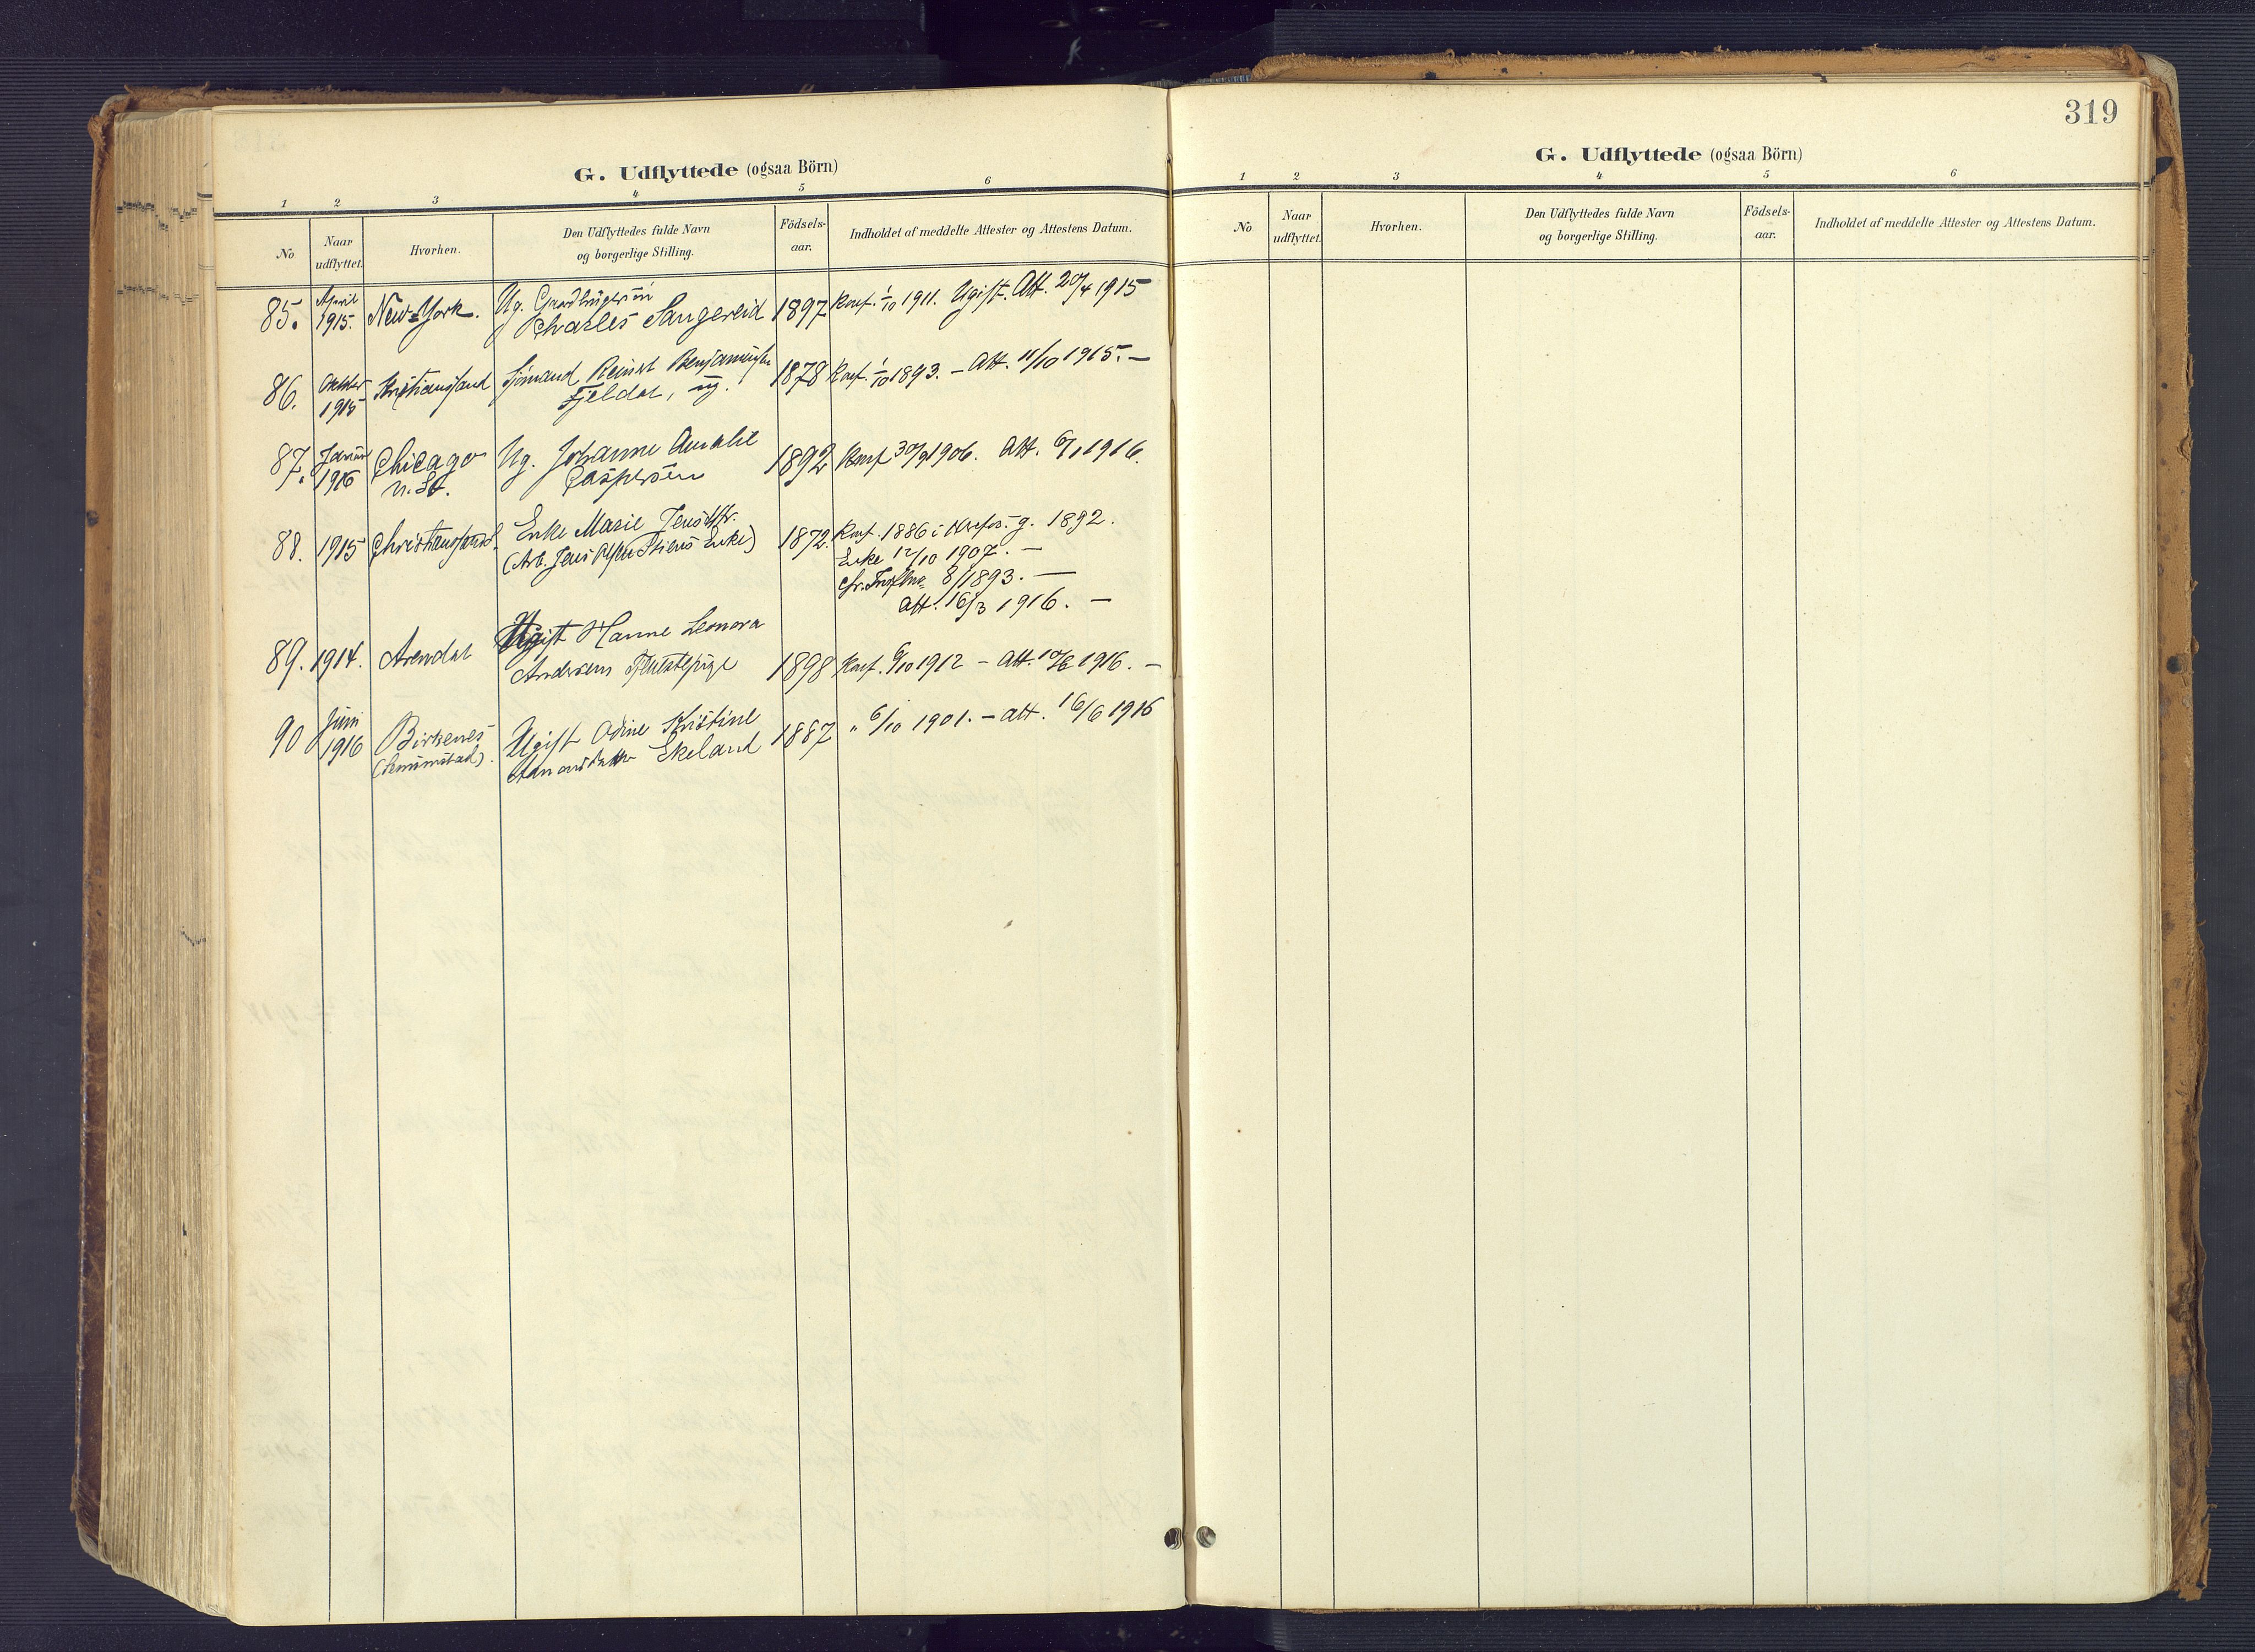 G. Udflyttede (ogsaa Börn)
1 2 3 4 5 6
No Naar udflyttet. Hvorhen. Den Udflyttedes fulde Navn og borgerlige Stilling. Födsels-aar. Indholdet af meddelte Attester og Attestens Datum.
85. April 1915. New-York. Ug.
Charles Sangereid 1897 Konf. 1/10 1911. Ugift. Att. 20/4 1915
86. Oktober 1915 Kristianssand Sjömand Reinert Benjaminsen
Fjeldal, ug. 1878 Konf. 1/10 1893. – Att. 11/10 1915. –
87. Januar 1916 Chicago Ug. Johanne Amalie
N. St. Caspersen 1892 Konf 30/9 1906. Att. 6/1 1916.
88. 1915 Christianssand Enke Marie Jensdtr. 1872. Konf. 1886 i g. 1892.
(Arb. Jens Enke) Enke 12/10 1907. –
8/1893. –
Att. 16/3 1916. –
89. 1914. Arendal Ugift Hanne Leonora
Andersen Tjenestepige 1898 Konf. 6/10 1912 – Att. 10/6 1916. –
90 Juni 1916 Birkenes Ugift Adine Kristine 1887 " 6/10 1901. – Att. 16/6 1916
Ekeland
319
G. Udflyttede (ogsaa Börn)
1 2 3 4 5 6
No Naar udflyttet. Hvorhen. Den Udflyttedes fulde Navn og borgerlige Stilling. Födsels-aar. Indholdet af meddelte Attester og Attestens Datum.